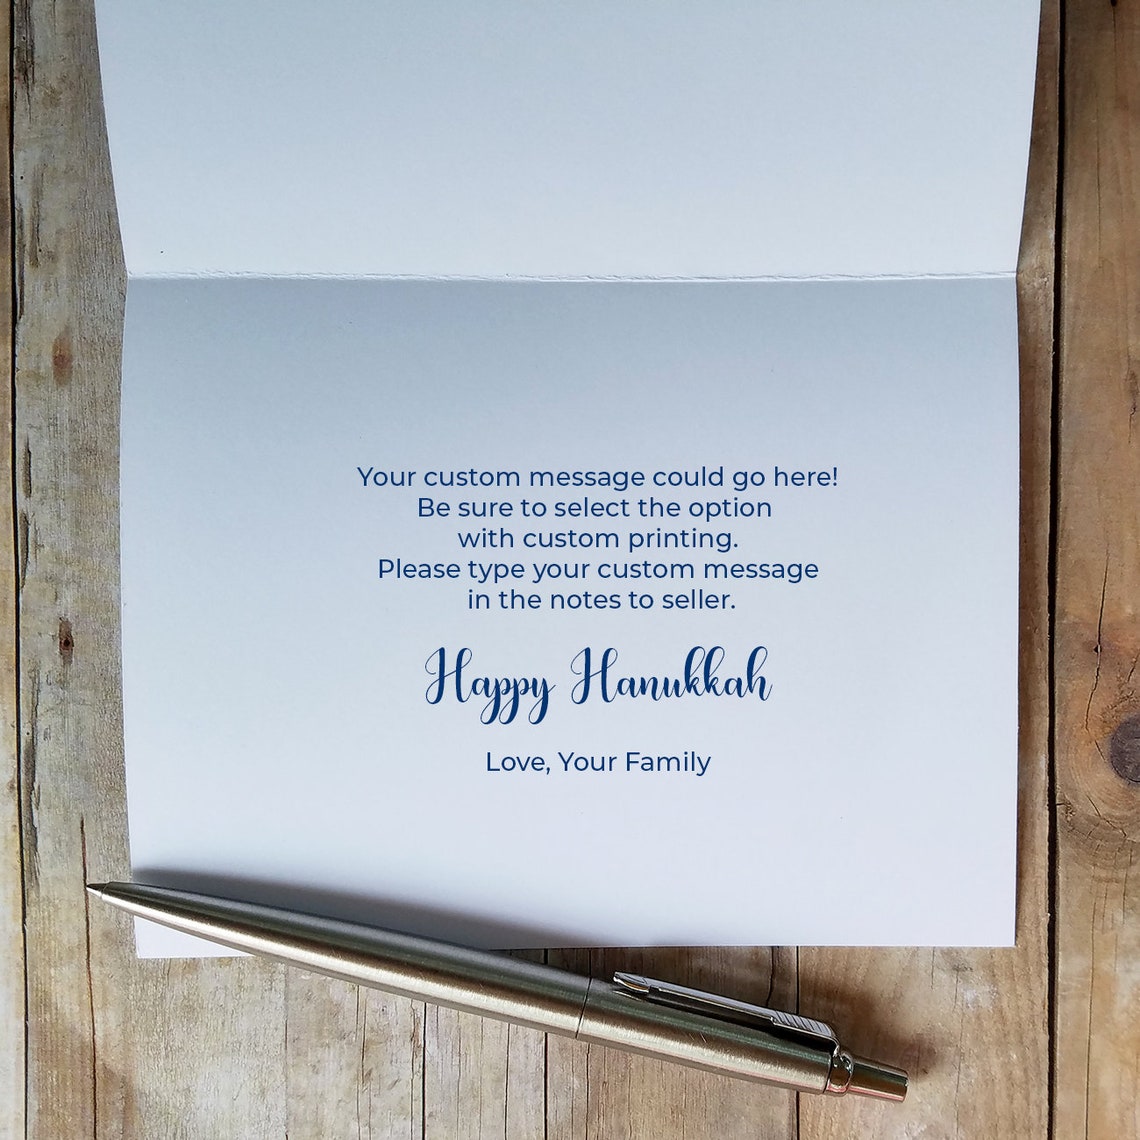 Your custom message could go here!
Be sure to select the option
with custom printing.
Please type your custom message
in the notes to seller.
Happy Hanukkah
Love, Your Family